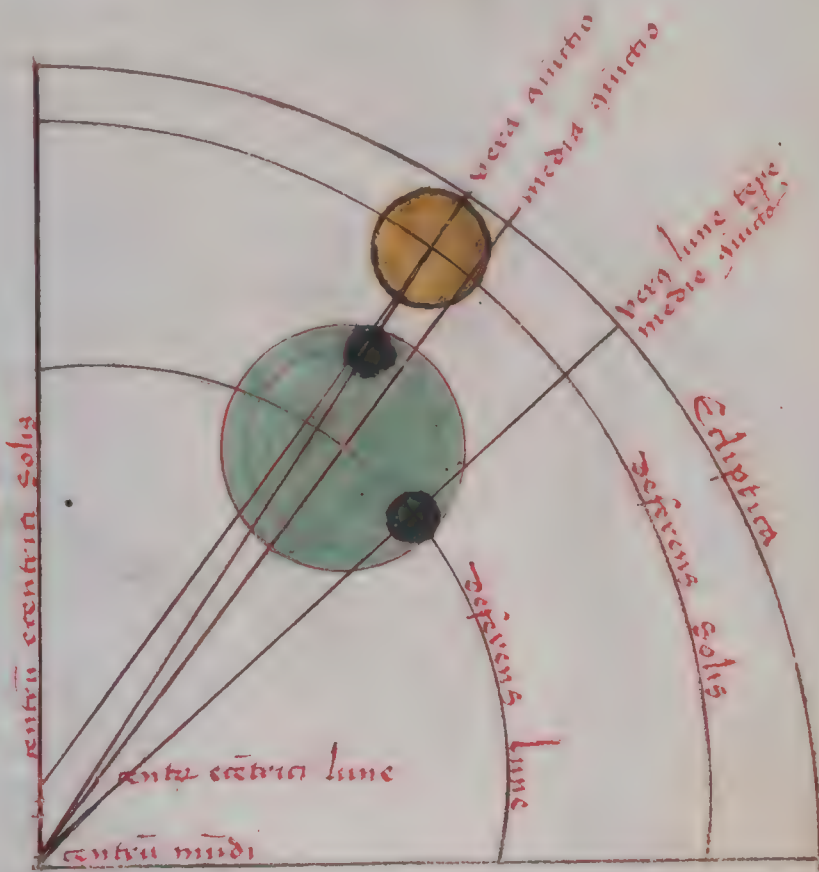 vera 9iu̅ctio
media 9iu̅ctio
vera lune t̅p̅e
medie 9iu̅ctio̅is
Ecliptica
deferens solis
deferens lune
centru̅ ece̅ntrici solis
centr̅ ece̅trici lune
centru̅ mu̅di